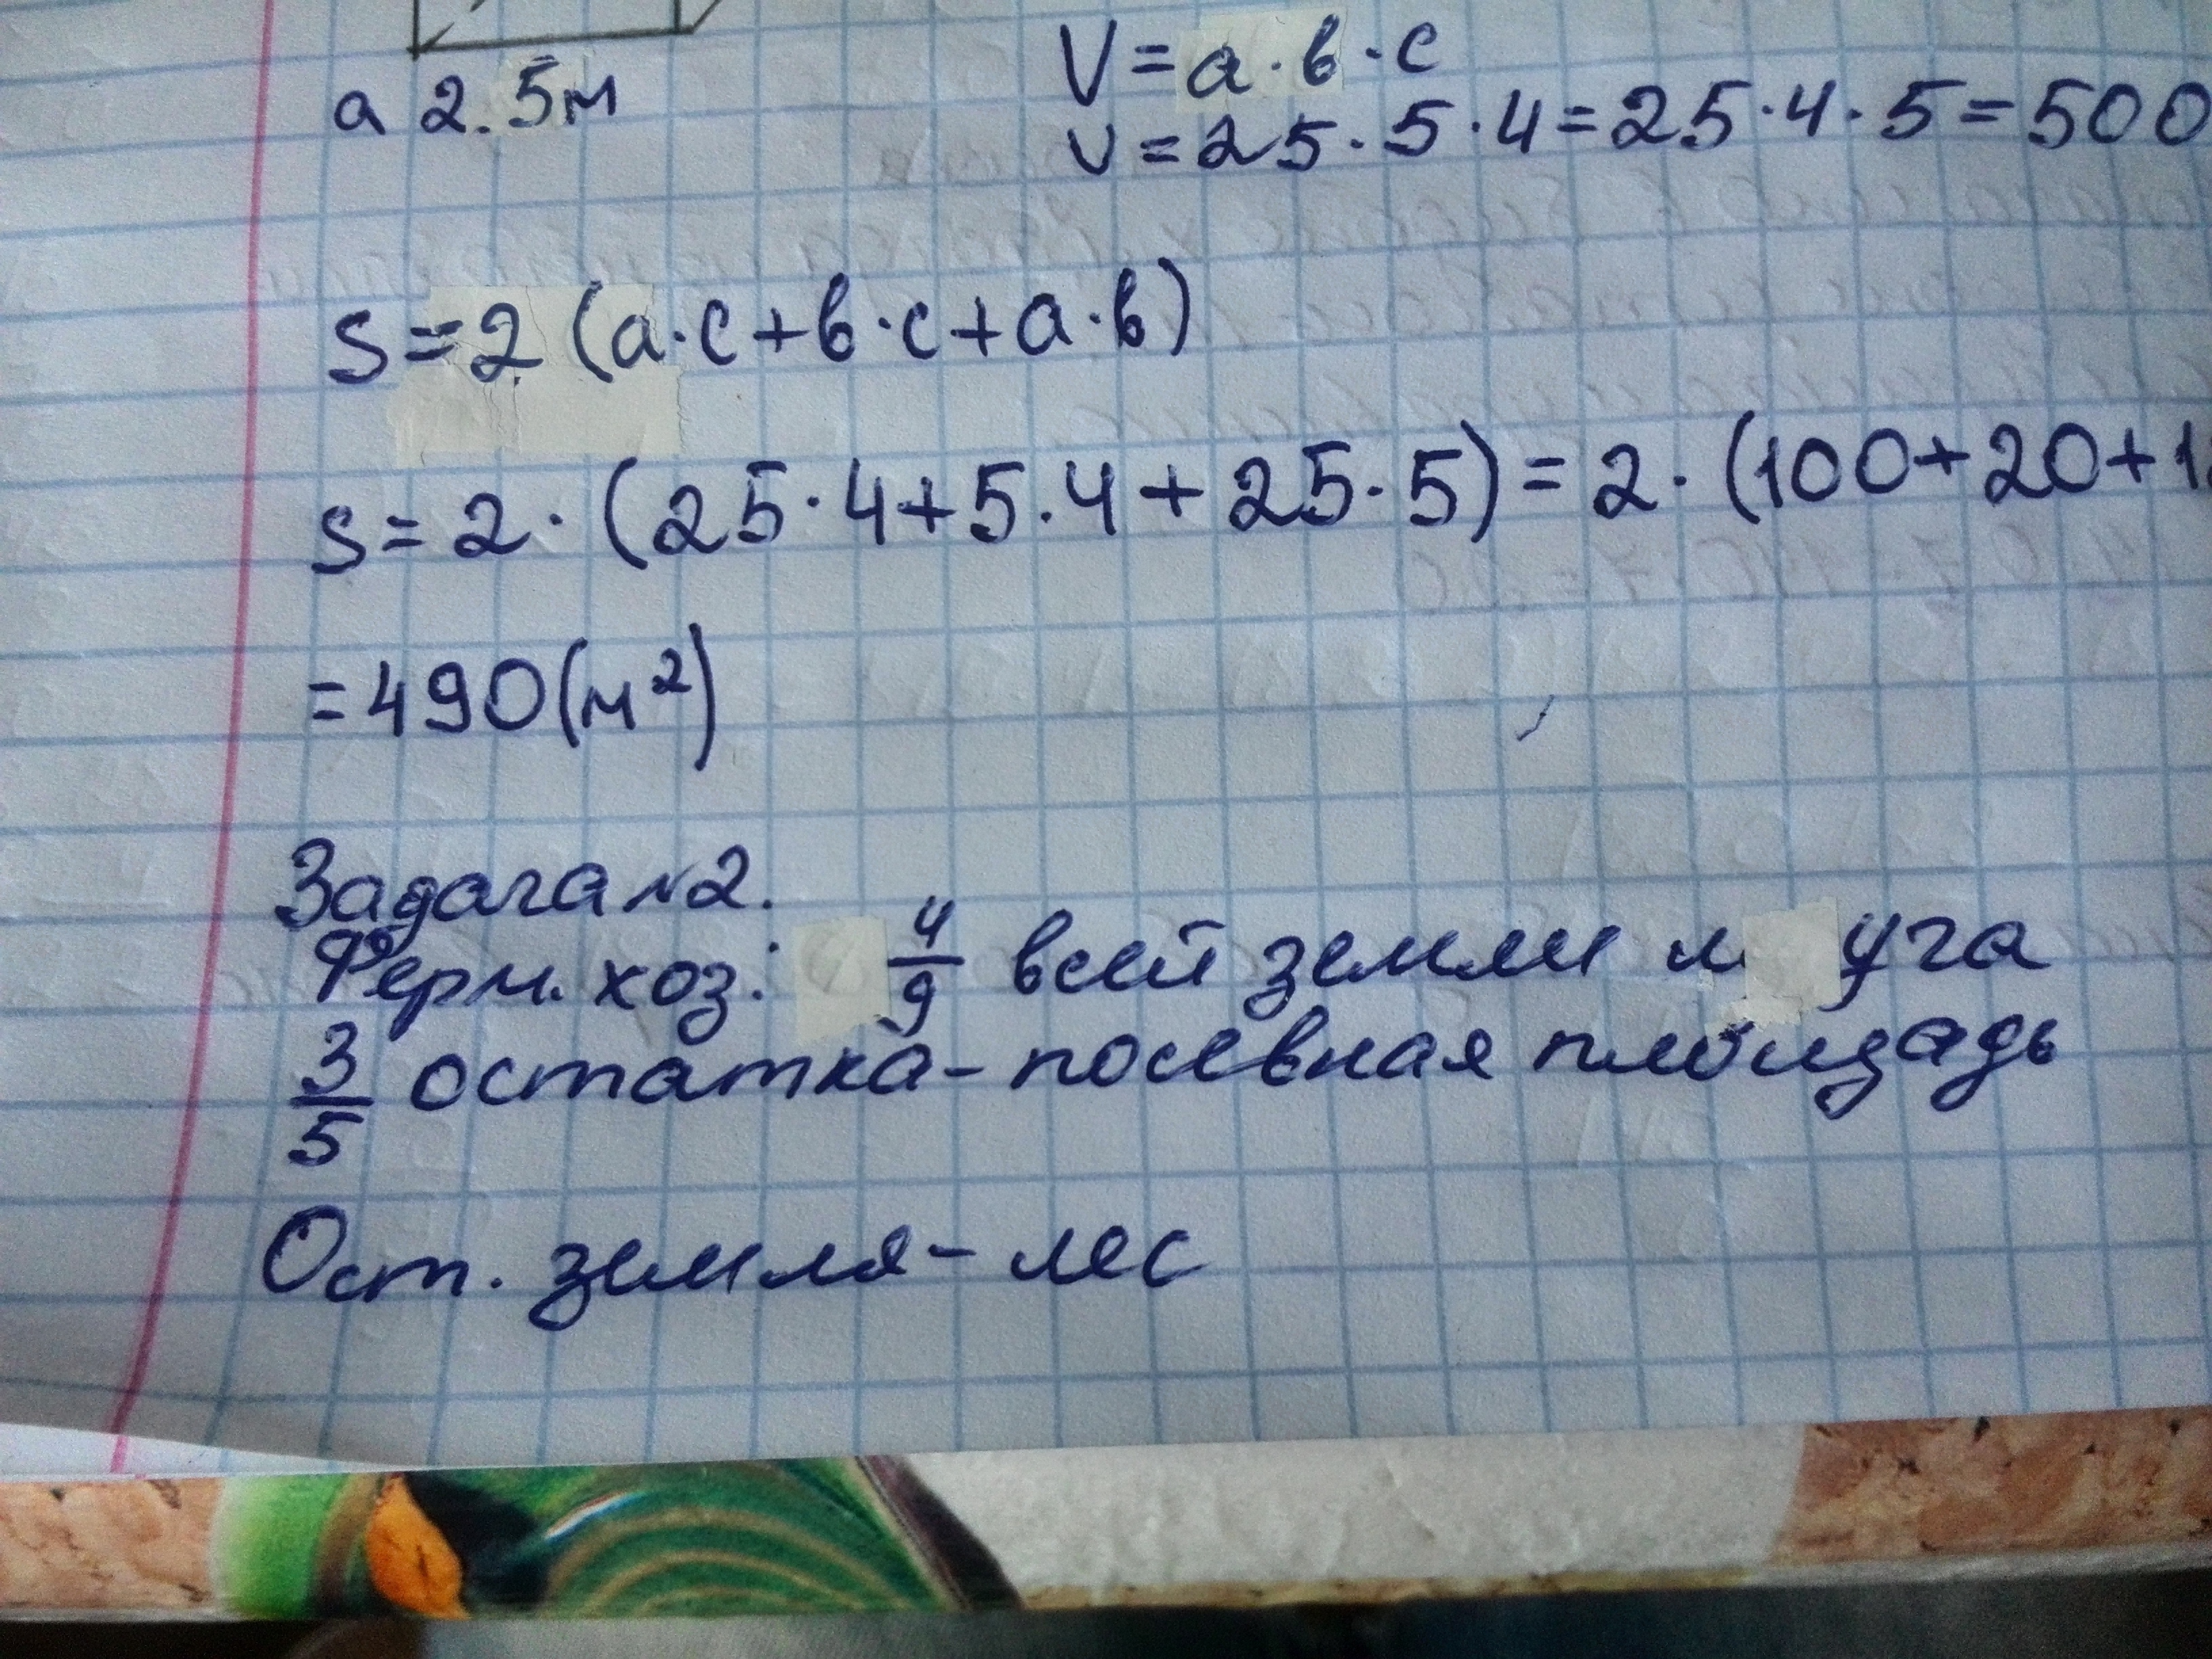 V=a·в·c
a 2.5м
v=25·5·4=25·4·5=500
S=2(a·c+в·c+a·в)
S=2·(25·4+5.4+25·5)=2·(100+20+12
=490(м²)
Задача №2.
Ферм. хоз: 4/9 всей земли луга
3/5 остатка-посевная площадь
Ост. земля-лес